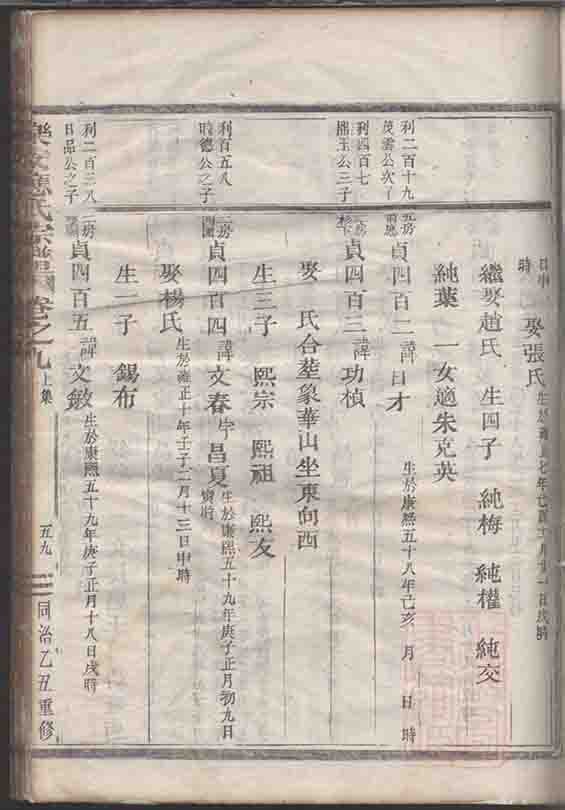 日申
時
娶張氏
繼娶趙氏 生四子 純梅 純權 純交
純葉 一女適朱克英
利二百十九
茂雲公次丁
五房
貞四百二 諱日才 生於康熙五十八年己亥 月 日 時
利四百七
三子
二房
貞四百三 諱功楨
娶 氏合塟象華山坐東向西
生三子 熙宗 熙祖 熙友
利百五八
明德公之子
二房
貞四百四 諱文春 字昌夏 生於康熙五十九年庚子正月初九日
寅時
娶楊氏 生於雍正十年壬子二月十三日申時
生一子 錫布
利二百三八
日品公之子
二房
貞四百五 諱文敏 生於康熙五十九年庚子正月十八日戌時
氏宗譜 卷之九 上集 五九 同治乙丑重修